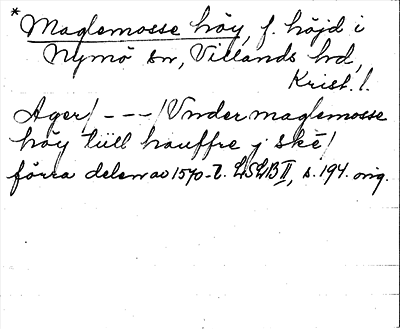 *Maglemosse höy, f. höjd i
Nymö sn, Villands hd,
Krist. l.
Ager/ - - -/Vnder maglemosse
höy tiill hauffre j skē/
förra delen av 1570-t. LSLB II, s. 194. orig.